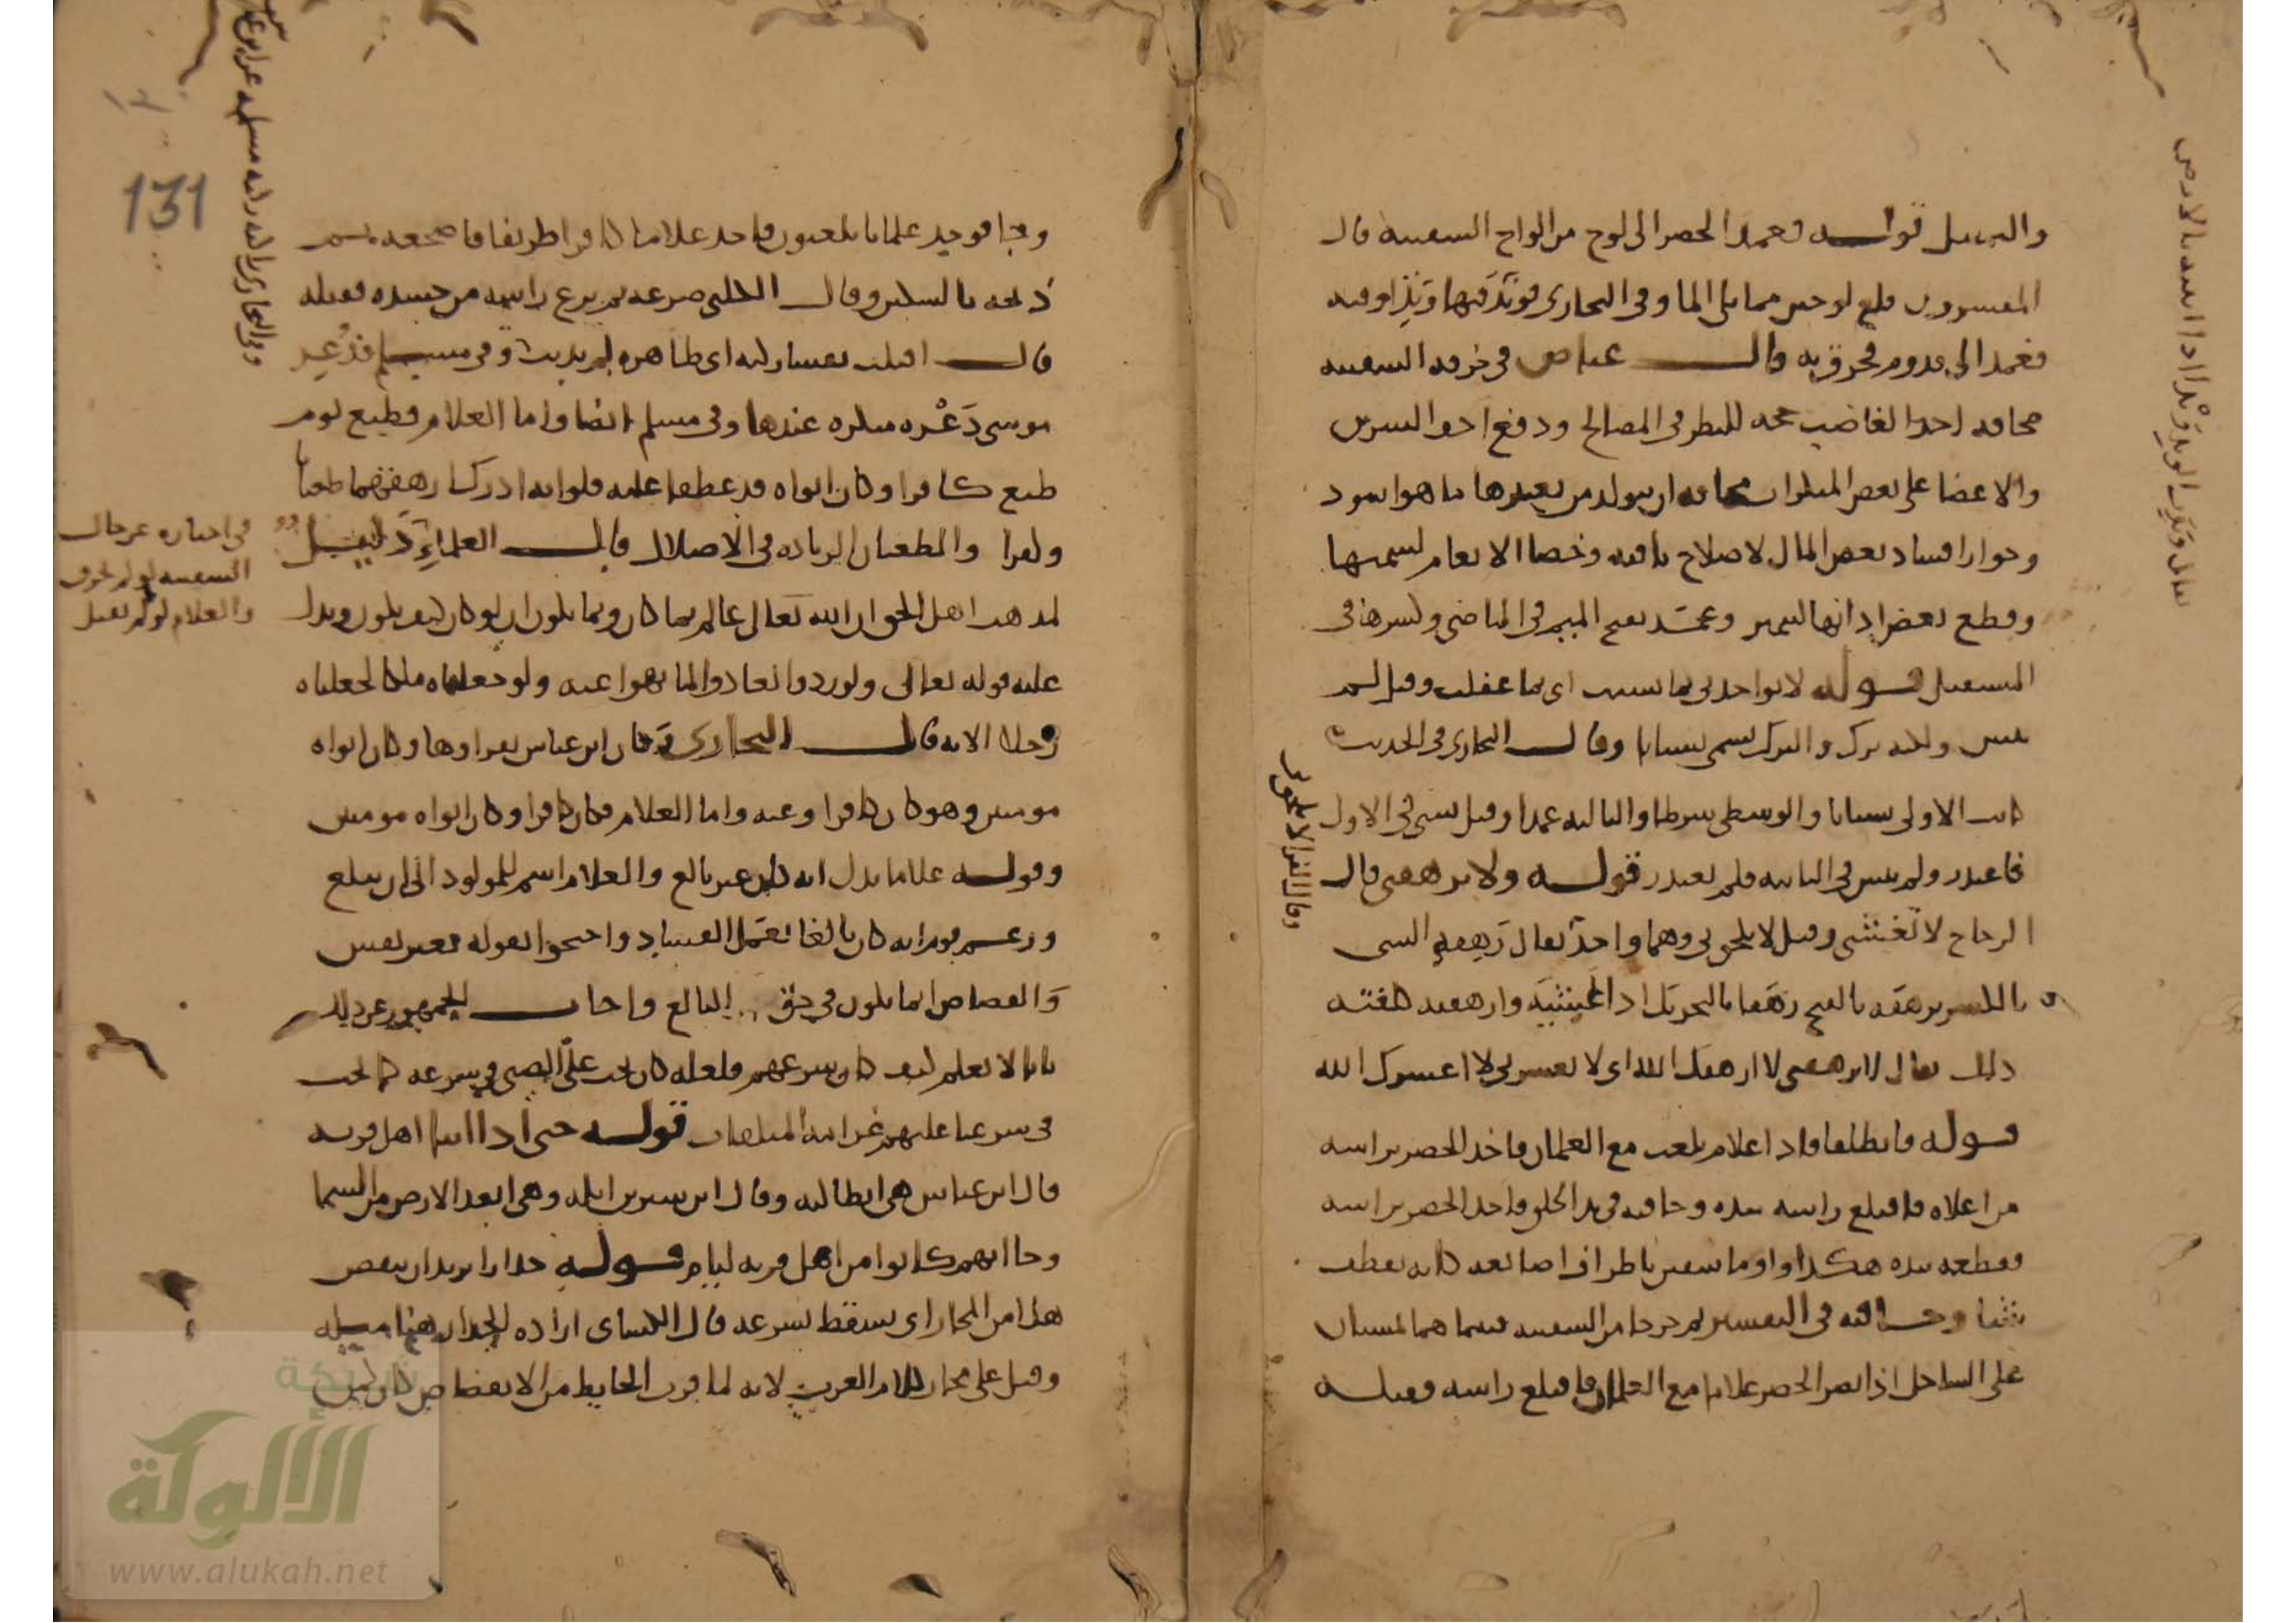 والتسهيل قوله فعمد الخضر الى لوح من الواح السفينة قال
المفسرون قلع لوحين مما يلي الما وفي البخاري فوتد فيها وتدا وفيه
فعمد الى قدوم فخرق به قال عياض في خرقه السفينة
مخافة اخذ الغاضب حجة للنظر في المصالح ودفع احد الشرين
والاغضا على بعض المنكرات مخافة ان يتولد من تغييرها ما هو اسود
وجواز افساد بعض المال لاصلاح باقيه وخصا الانعام لسمنها
وقطع بعض اذانها لتميز وعمد بفتح الميم في الماضي وكسرها في
المستقبل قوله لا تواخذني بما نسيت اي بما غفلت وقيل لم
ينس ولكنه ترك والترك يسمى نسيانا وقال البخاري في الحديث
كانت الاولى نسيانا والوسطى شرطا والثالثة عمدا وقيل نسي في الاول
فاعتذر ولم ينس في الثانية فلم يعتذر قوله ولا ترهقني قال
الزجاج لا تغشني وقيل لا يلحق بي وهما واحد يقال رهقه الشي
بالكسر يرهقه بالفتح رهقا بالتحريك اذا غشيه وارهقته كلفته
ذلك يقال لا ترهقني لا ارهقك الله اي لا تعسرني لا اعسرك الله
قوله فانطلقا فاذا غلام يلعب مع الغلمان فاخذ الخضر براسه
من اعلاه فاقتلع راسه بيده وجا فيه في بدا الخلق فاخذ الخضر براسه
فقطعه بيده هكذا واوما سفين باطراف اصابعه كانه يقطف
شيا وجا فيه في التفسير ثم خرجا من السفينة فبينما هما يمشيان
على الساحل اذ ابصر الخضر غلاما مع الغلمان فاقتلع راسه فقتله
تعالى وتدت الوتد وتدا اذا اثبته بالارض
وفيها فوجد غلمانا يلعبون فاخذ غلاما كافرا ظريفا فاضجعه ثم
ذبحه بالسكين وقال الكلبي صرعه ثم نزع راسه من جسده فقتله
قال اقتلت نفسا زكية اي طاهرة لم تذنب وفي مسلم فذعر
موسى ذعرة منكرة عندها وفي مسلم ايضا واما الغلام فطبع يوم
طبع كافرا وكان ابواه قد عطفا عليه فلو انه ادرك ارهقهما طغيانا
وكفرا والطغيان الزيادة في الاضلال قال العلماء دليل
لمذهب اهل الحق ان الله تعالى عالم بما كان وبما يكون ان لو كان كيف يكون ويدل
عليه قوله تعالى ولو ردوا لعادوا لما نهوا عنه ولو جعلناه ملكا لجعلناه
رجلا الاية قال البخاري وكان ابن عباس يقراوها وكان ابواه
مومنين وهو كان كافرا وعنه واما الغلام فكان كافرا وكان ابواه مومنين
وقوله غلاما يدل انه كان غير بالغ والغلام اسم للمولود الى ان يبلغ
وزعم قوم انه كان بالغا يعمل الفساد واحتجوا بقوله بغير نفس
والقصاص انما يكون في حق البالغ واجاب الجمهور عن ذلك
بانا لا نعلم كيف كان شرعهم فلعله كان يجب على الصبي في شرعه كما يجب
في شرعنا عليهم غرامة المتلفات قوله حتى اذا اتيا اهل قرية
قال ابن عباس هي انطاكية وقال ابن سيرين ايلة وهي ابعد الارض من السما
وجا انهم كانوا من اهل قرية ليام قوله جدارا يريد ان ينقض
هذا من المجاز اي يسقط بسرعة قال الكساي ارادة الجدار هنا ميله
وقيل على مجاز كلام العرب لانه لما قرب الحايط من الانقضاض كان كمن
في اخباره عن حال
السفينة لو لم تخرق
والغلام لو لم يقتل
131
شبكة
الألوكة
www.alukah.net